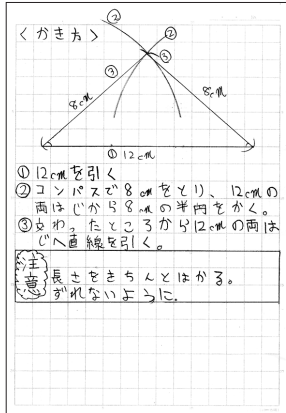 〈かき方〉
②
②
③
③
8cm
8cm
① 12cm
①12cmを引く
②コンパスで8cmをとり、12cmの
両はじから8cmの半円をかく。
③交わったところから12cmの両は
じへ直線を引く。
注意
長さをきちんとはかる。
ずれないように.